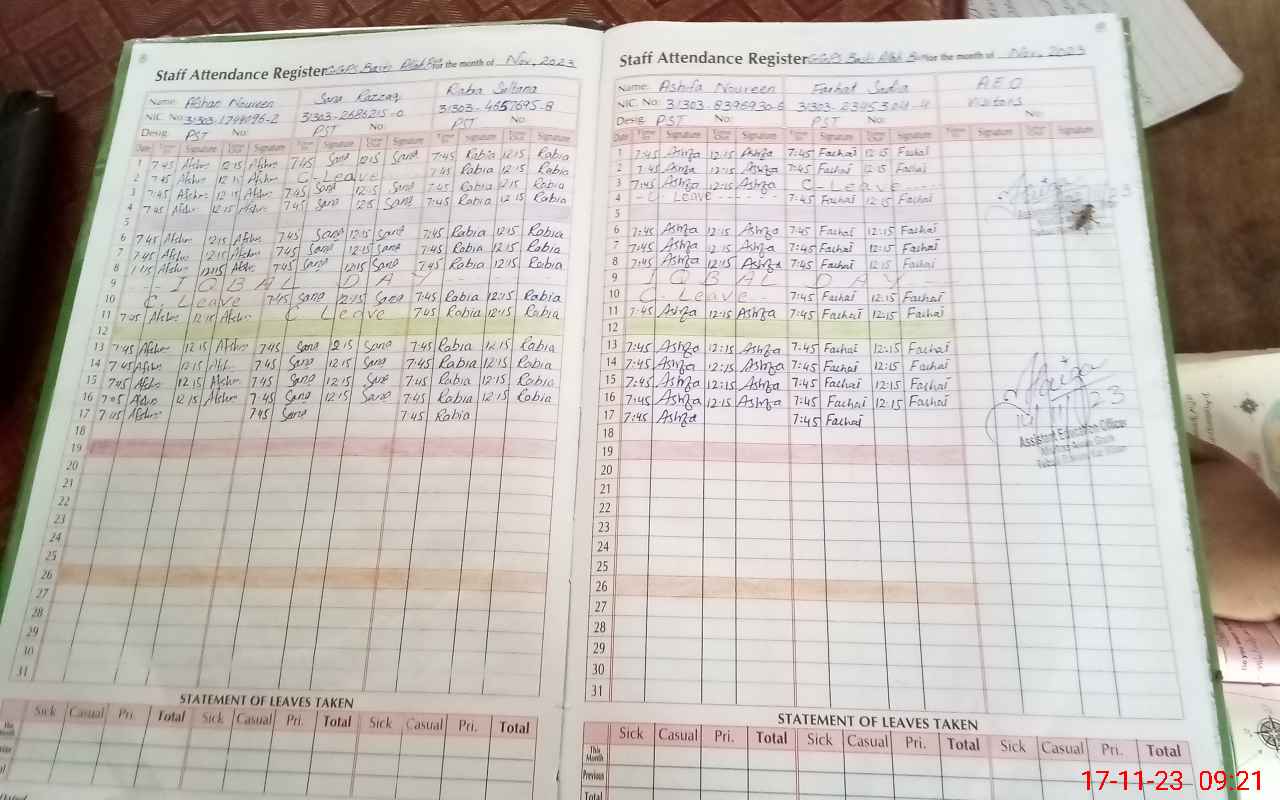 Staff Attendance Register GGPS Basti Allah for the month of Nov, 2023
Name: Afshan Noureen Sana Razzaq Rabia Sultana
NIC. No: 31303-1744096-2 31303-2686215-0 31303-4657695-8
Desig: PST No: PST No: PST
Date Signature Signature Signature Signature Signature Signature
1 7:45 Afshn 12:15 Afshn 7:45 Sana 12:15 Sana 7:45 Rabia 12:15 Rabia
2 7:45 Afshn 12:15 Afshn C-Leave 7:45 Rabia 12:15 Rabia
3 7:45 Afshn 12:15 Afshn 7:45 Sana 12:15 Sana 7:45 Rabia 12:15 Rabia
4 7:45 Afshn 12:15 Afshn 7:45 Sana 12:15 Sana 7:45 Rabia 12:15 Rabia
5
6 7:45 Afshn 12:15 Afshn 7:45 Sana 12:15 Sana 7:45 Rabia 12:15 Rabia
7 7:45 Afshn 12:15 Afshn 7:45 Sana 12:15 Sana 7:45 Rabia 12:15 Rabia
8 Afshn 12:15 Afshn 7:45 Sana 12:15 Sana 7:45 Rabia 12:15 Rabia
9 IQBAL DAY
10 C Leave 7:45 Sana 12:15 Sana 7:45 Rabia 12:15 Rabia
11 7:45 Afshn 12:15 Afshn C Leave 7:45 Rabia 12:15 Rabia
12
13 7:45 Afshn 12:15 Afshn 7:45 Sana 2:15 Sana 7:45 Rabia 12:15 Rabia
14 7:45 Afshn 12:15 Afsh 7:45 Sana 12:15 Sana 7:45 Rabia 12:15 Rabia
15 7:45 Afshn 12:15 Afshn 7:45 Sana 12:15 Sana 7:45 Rabia 12:15 Rabia
16 Afshn 12:15 Afshn 7:45 Sana 12:15 Sana 7:45 Rabia 12:15 Rabia
17 Afshn 7:45 Sana 7:45 Rabia
18
19
20
21
22
23
24
25
26
27
28
29
30
31
STATEMENT OF LEAVES TAKEN
Sick Casual Pri. Total Sick Casual Pri. Total Sick Casual Pri. Total
Staff Attendance Register GGPS Basti Allah for the month of Nov, 2023
Name: Ashifa Noureen Farhat Sadia A.E.O
NIC. No: 31303-8396930-6 31303-2345304-4 Visitors
Desig: PST No: PST No:
Date Signature Signature Signature Signature Signature Signature
1 7:45 Ashfa 12:15 Ashfa 7:45 Farhat 12:15 Farhat
2 7:45 Ashfa 12:15 Ashfa 7:45 Farhat 12:15 Farhat
3 7:45 Ashfa 12:15 Ashfa C-Leave
4 C-Leave 7:45 Farhat 12:15 Farhat
5
6 7:45 Ashfa 12:15 Ashfa 7:45 Farhat 12:15 Farhat
7 7:45 Ashfa 12:15 Ashfa 7:45 Farhat 12:15 Farhat
8 7:45 Ashfa 12:15 Ashfa 7:45 Farhat 12:15 Farhat
9 IQBAL DAY
10 C-Leave 7:45 Farhat 12:15 Farhat
11 7:45 Ashfa 12:15 Ashfa 7:45 Farhat 12:15 Farhat
12
13 7:45 Ashfa 12:15 Ashfa 7:45 Farhat 12:15 Farhat
14 7:45 Ashfa 12:15 Ashfa 7:45 Farhat 12:15 Farhat
15 7:45 Ashfa 12:15 Ashfa 7:45 Farhat 12:15 Farhat
16 7:45 Ashfa 12:15 Ashfa 7:45 Farhat 12:15 Farhat
17 7:45 Ashfa 7:45 Farhat
Assistant Education Officer
18
19
20
21
22
23
24
25
26
27
28
29
30
31
STATEMENT OF LEAVES TAKEN
Sick Casual Pri. Total Sick Casual Pri. Total Sick Casual Pri. Total
This Month
Previous
Total
17-11-23 09:21